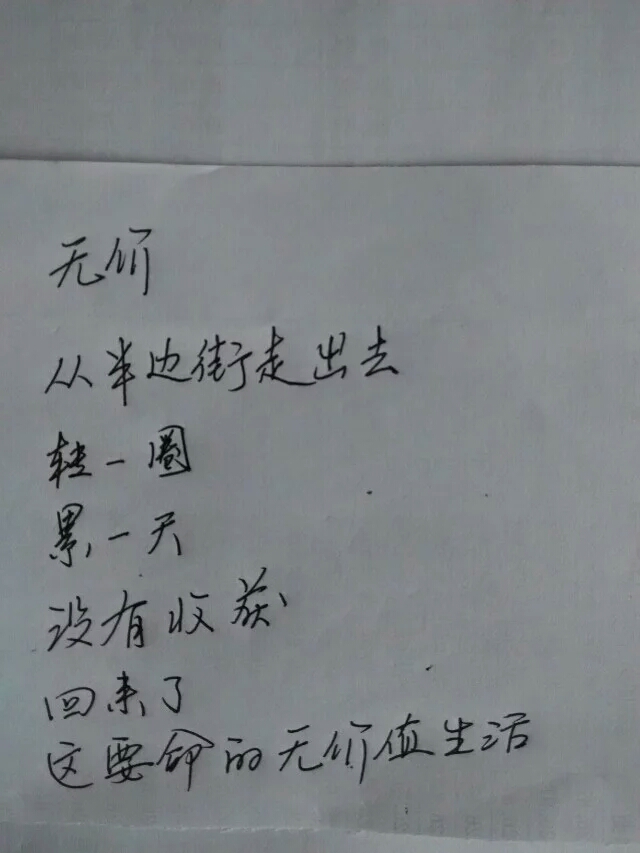 无价
从半边街走出去
转一圈
累一天
没有收获
回来了
这要命的无价值生活